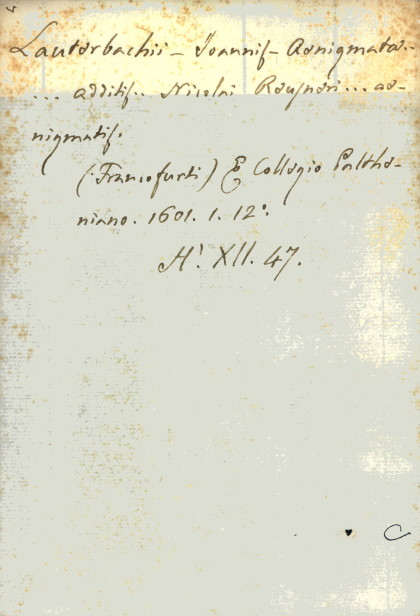 Lauterbachii – Joannis – Aenigmata..
... additis.. Nicolai Reusneri... ae-
nigmatis.
(Francofurti) E Collegio Paltha-
niano. 1601. 1. 12°.
H' XII. 47.
C